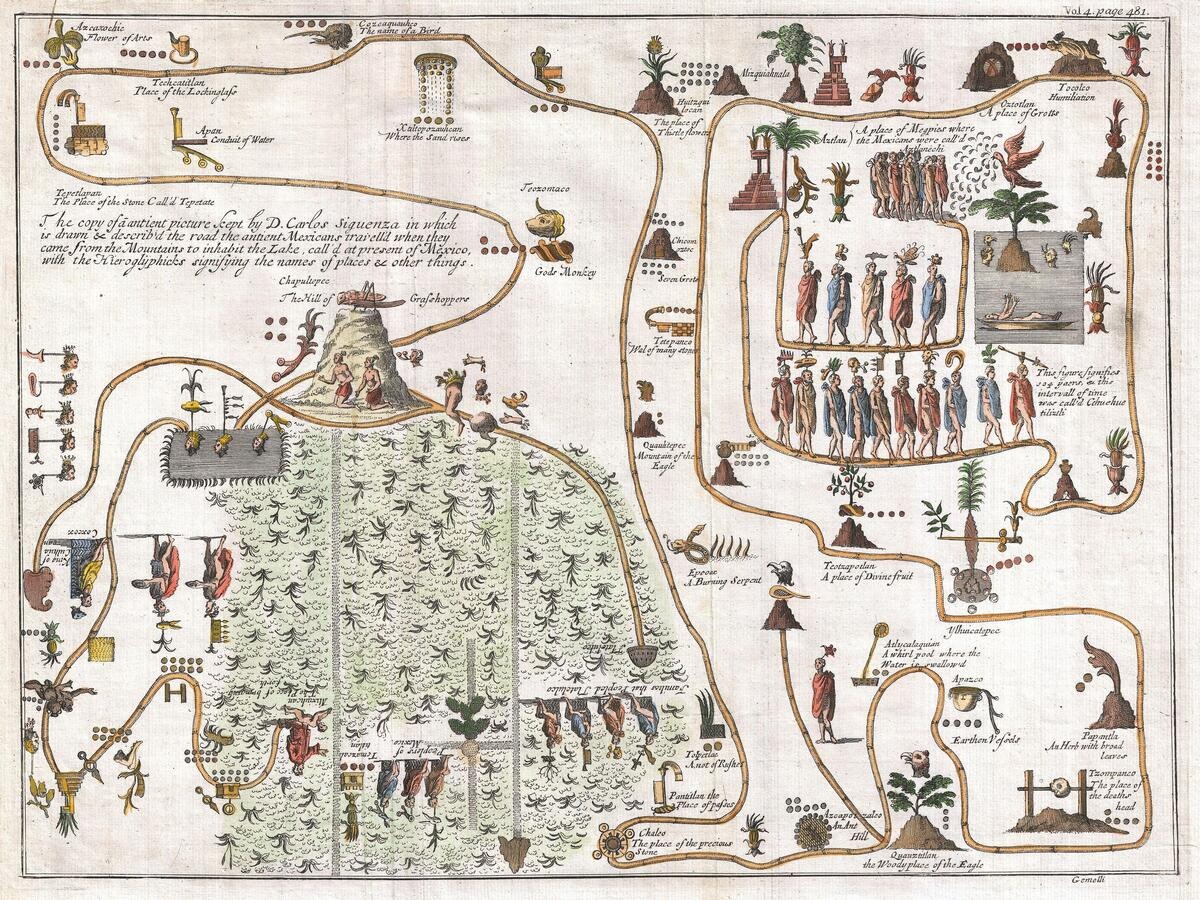 Vol 4. page 481.
Azcaxochic
Flower of Arts
Cozcaquauhco
The name of a Bird
Techcatitlan
Place of the Lockinglass
Apan
Conduit of Water
Xaltepozauhcan
Where the Sand rises
Huitzqui
locan
The place of
Thistle flowers
Mizquiahuala
Oztotlan
A place of Grotts
Tocolco
Humiliation
Aztlan
A place of Megpies where
the Mexicans were call'd
Aztlanechi
Tepetlapan
The Place of the Stone Call'd Tepetate
The copy of a antient picture kept by D. Carlos Siguenza in which
is drawn & describ'd the road the antient Mexicans travell'd when they
came from the Mountains to inhabit the Lake, call'd at present of Mexico,
with the Hieroglyphicks signifying the names of places & other things.
Teozomaco
Gods Monkey
Chicom
oztoc
Seven Grots
Chapultepec
The Hill of Grasshoppers
Tetepanco
Wal of many stones
This figure signifies
104 years, & this
intervall of time
was call'd Cihuehue
tilizli
Quauhtepec
Mountain of the
Eagle
Epcoac
A Burning Serpent
Teotzapotlan
A place of Divine fruit
King of
Culhua
can
Coxcox
Ylhuicatepec
Atlycalaquian
A whirl pool where the
Water is swallow'd
Apazco
Earthen Vessels
Papantla
An Herb with broad
leaves
Tzompanco
The place of
the deaths
head
Families that Peopled Tlatelulco
Mexican
The place of bringing
forth
Tenuch
titlan
Peoplers
of Mexico
Tolpetlac
A not of Rushes
Pantitlan the
Place of passes
Chalco
The place of the precious
Stone
Azcapotzalco
An Ant
Hill
Quauztitlan
the Woody place of the Eagle
Gemelli